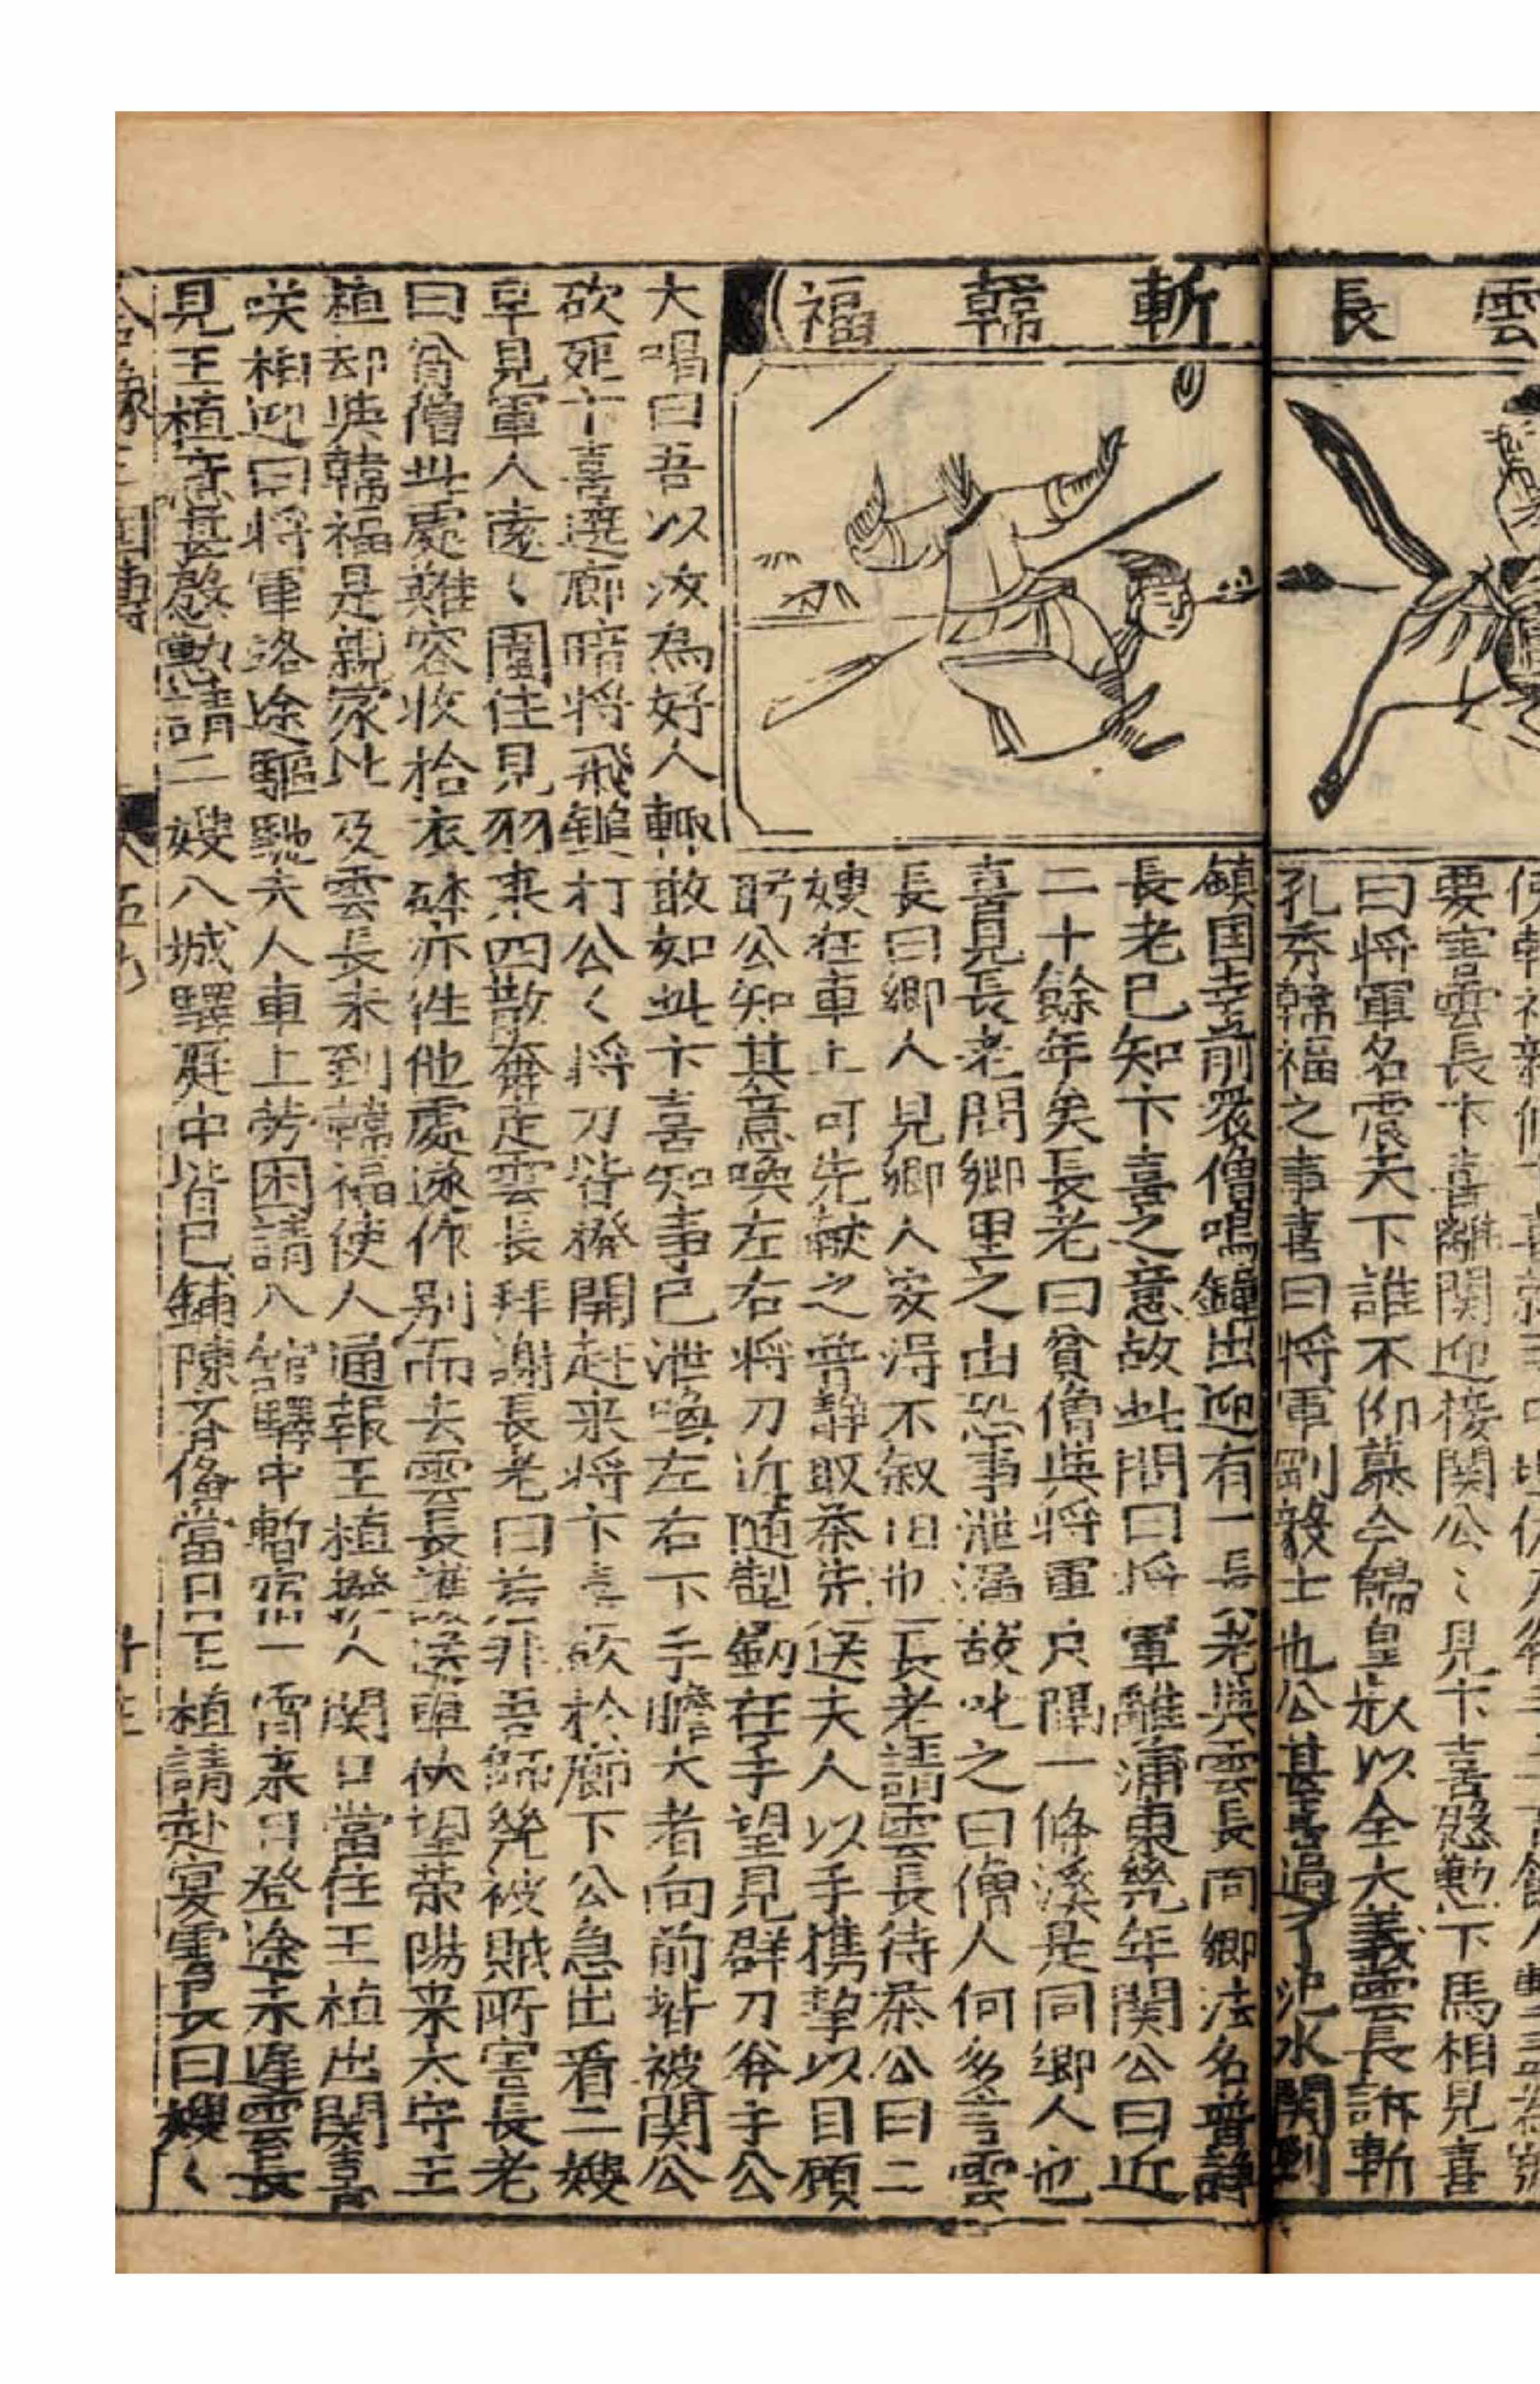 雲長
斬韓福
要害雲長卞喜離関迎接関公〻見卞喜慇懃下馬相見喜
曰将軍名震天下誰不仰慕今帰皇叔以全大義雲長訴斬
孔秀韓福之事喜曰将軍剛毅士也公甚喜過了汜水関到
鎮国寺前衆僧鳴鐘出迎有一長老與雲長同鄉法名普静
長老已知卞喜之意故此問曰将軍離蒲東幾年関公曰近
二十餘年矣長老曰貧僧與将軍只隔一條溪是同鄉人也
喜見長老問鄉里之由恐事泄漏故叱之曰僧人何多言雲
長曰鄉人見鄉人安得不叙旧也長老請雲長待茶公曰二
嫂在車上可先献之普静取茶先送夫人以手携挚以目顧
盻公知其意喚左右将刀近随製劒在手望見群刀斧手公
大喝曰吾以汝為好人輙敢如此卞喜知事已泄喚左右下手膽大者向前皆被関公
砍死卞喜遶廊暗将飛鎚打公〻将刀背撥開赶来将卞喜砍於廊下公急出看二嫂
早見軍人遠〻圍住見羽来四散奔走雲長拜謝長老曰若非吾師幾被賊所害長老
曰貧僧此處難容收拾衣鉢亦往他處遂作别而去雲長進送車仗望荥陽来太守王
植却與韓福是親家比及雲長未到韓福使人通報王植撥人関口當住王植出関喜
咲相迎曰将軍洛途驅馳夫人車上劳困請入舘驛中暫宿一宵来日登途未遲雲長
見王植意甚慇懃請二嫂入城驛庭中皆已鋪陳齐俻當日王植請赴宴雲長曰嫂〻